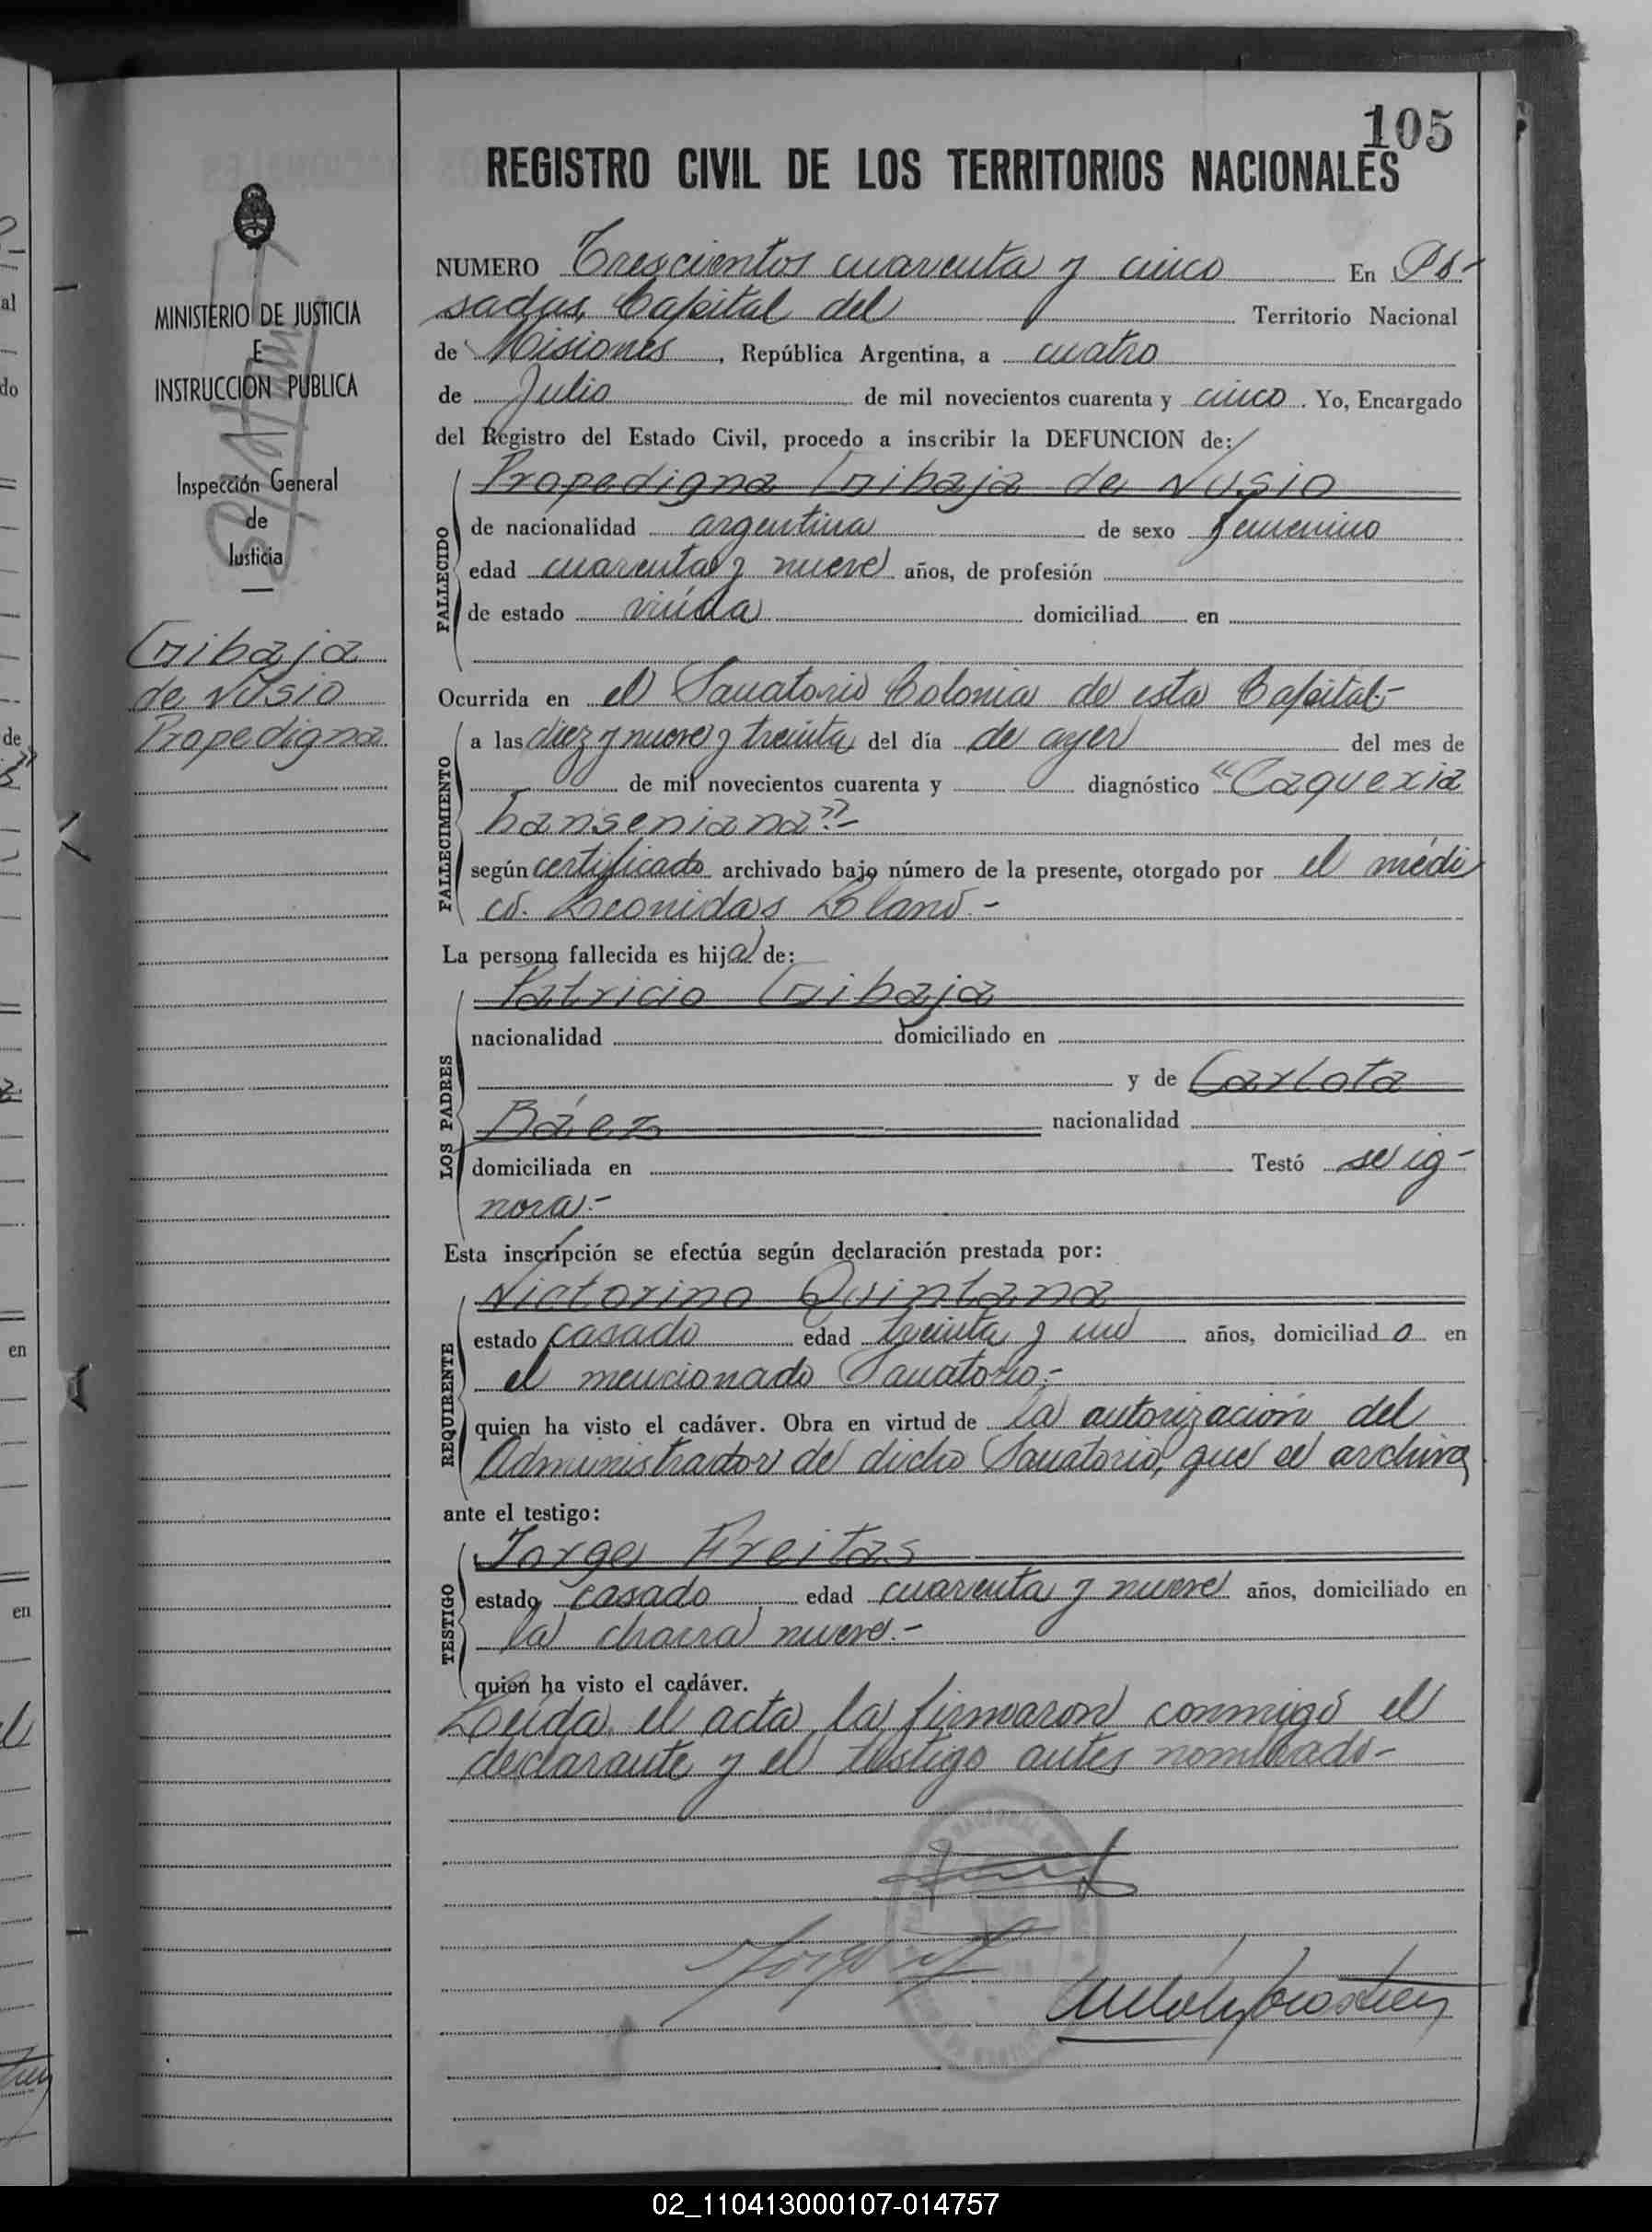 105
REGISTRO CIVIL DE LOS TERRITORIOS NACIONALES
MINISTERIO DE JUSTICIA
E
INSTRUCCIÓN PUBLICA
Inspección General
de
Justicia
Gribaja
de Nusio
Propedigna
NUMERO Trescientos cuarenta y cinco En Po-
sadas, Capital del Territorio Nacional
de Misiones, República Argentina, a cuatro
de Julio de mil novecientos cuarenta y cinco. Yo, Encargado
del Registro del Estado Civil, procedo a inscribir la DEFUNCION de:
Propedigna Gribaja de Nusio
FALLECIDO
de nacionalidad argentina de sexo femenino
edad cuarenta y nueve años, de profesión
de estado viúda domiciliad en
Ocurrida en el Sanatorio Colonia de esta Capital-
FALLECIMIENTO
a las diez y nueve y treinta del día de ayer del mes de
de mil novecientos cuarenta y diagnóstico "Caquexia
hanseniana"-
según certificado archivado bajo número de la presente, otorgado por el médi
co. Leonidas Llano.-
La persona fallecida es hija de:
LOS PADRES
Patricio Gribaja
nacionalidad domiciliado en
y de Carlota
Báez nacionalidad
domiciliada en Testó se ig-
nora.-
Esta inscripción se efectúa según declaración prestada por:
REQUIRENTE
Victorino Quintana
estado casado edad treinta y un años, domiciliado en
el mencionado Sanatorio.-
quien ha visto el cadáver. Obra en virtud de la autorización del
Administrador de dicho Sanatorio, que se archiva
ante el testigo:
TESTIGO
Jorge Freitas
estado casado edad cuarenta y nueve años, domiciliado en
la chacra nueve.-
quien ha visto el cadáver.
Leída el acta la firmaron conmigo el
declarante y el testigo antes nombrado-
02_110413000107-014757